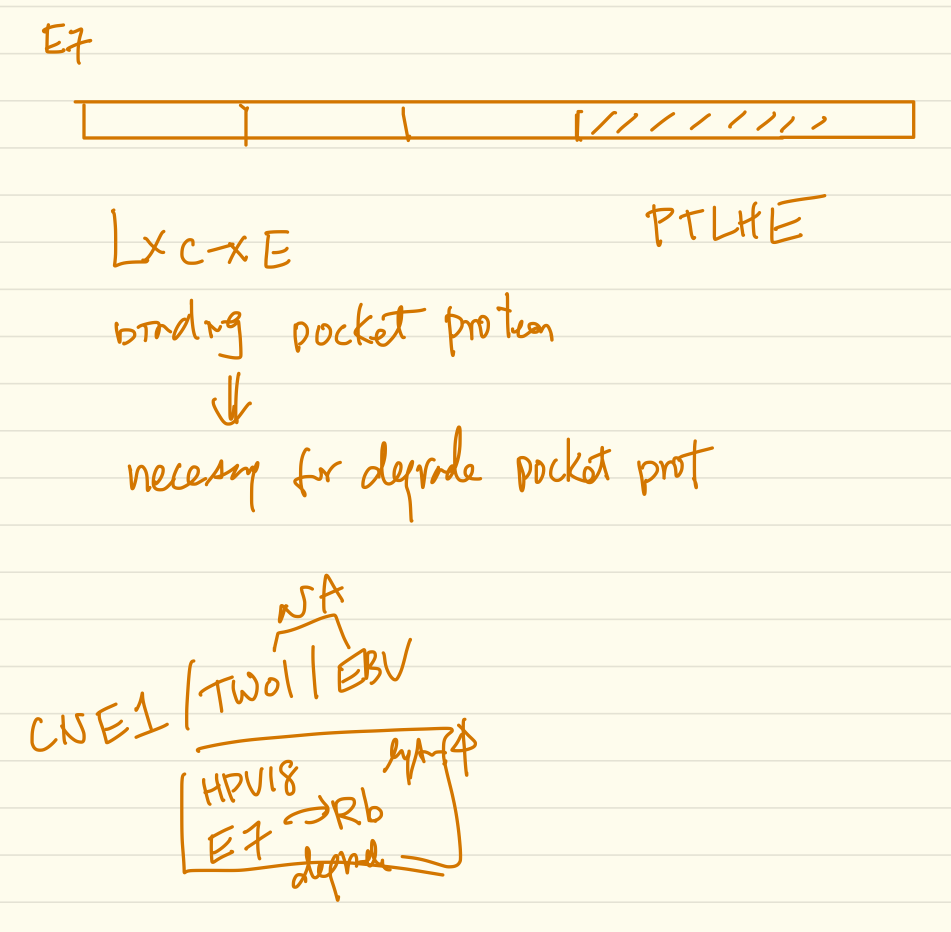 E7
PTLHE
LXCXE
binding pocket protein
necessary for degrade pocket prot
NA
CNE1 / TW01 | EBV
HPV18
E7 → Rb
degrade